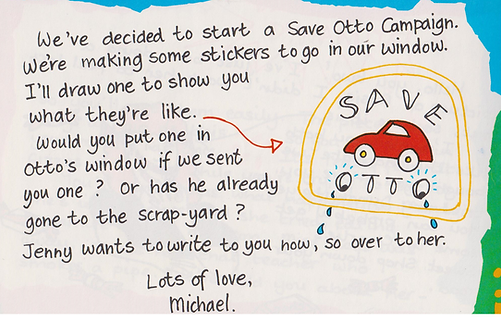 We've decided to start a Save Otto Campaign.
We're making some stickers to go in our window.
I'll draw one to show you
what they're like.
Would you put one in
Otto's window if we sent
you one? Or has he already
gone to the scrap-yard?
Jenny wants to write to you now, so over to her.
Lots of love,
Michael.
SAVE
OTTO